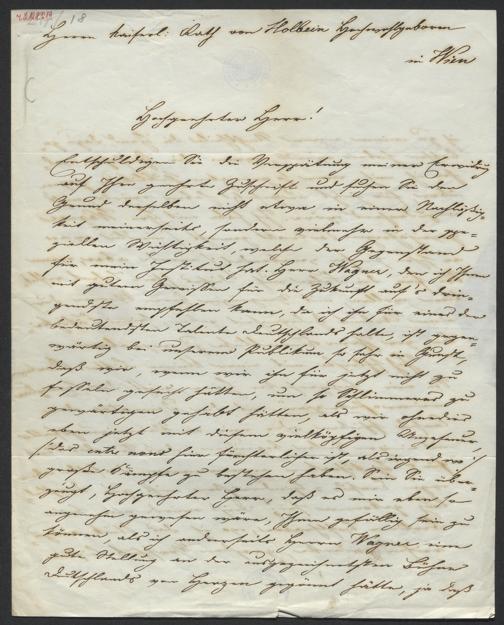 18
Herrn Kaiserl: Rath von Holbein Hochwohlgeboren
in Wien
Hochgeehrter Herr!
Entschuldigen Sie die Verspätung meiner Erwiderung
auf Ihre geehrte Zuschrift und suchen Sie den
Grund derselben nicht etwa in einer Nachlässig-
keit meinerseits, sondern vielmehr in der spe-
ziellen Wichtigkeit, welche der Gegenstand
für mein Institut hat. Herr Wagner, den ich Ihnen
mit gutem Gewissen für die Zukunft auf's drin-
gendste empfehlen kann, da ich ihn für eines der
bedeutendsten Talente Deutschlands halte, ist gegen-
wärtig bei unserem Publikum so sehr in Gunst,
daß wir, wenn wir ihn für jetzt nicht zu
fesseln gesucht hätten, um so Schlimmeres zu
gewärtigen gehabt hätten, als wir ohnedies
eben jetzt mit diesem vielköpfigen Ungeheuer,
(das entre nous hier fürchterlicher ist, als irgendwo)
große Kämpfe zu bestehen haben. Sein Sie über-
zeugt, hochgeehrter Herr, daß es mir eben so
angenehm gewesen wäre, Ihnen gefällig sein zu
können, als ich anderseits Herrn Wagner eine
gute Stellung an der ausgezeichnetsten Bühne
Deutschlands von Herzen gegönnt hätte, ja daß